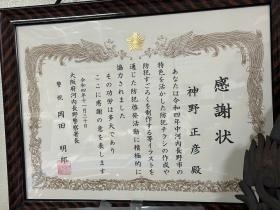 感謝状
神野 正彦 殿
あなたは令和四年中河内長野市の
特色を活かした防犯チラシの作成や
防犯すごろくを制作する等イラストを
通じた防犯啓発活動に積極的に
協力されました
その功労は多大であり
ここに感謝の意を表します
令和四年十一月二十日
大阪府河内長野警察署長
警視 岡田 明郎